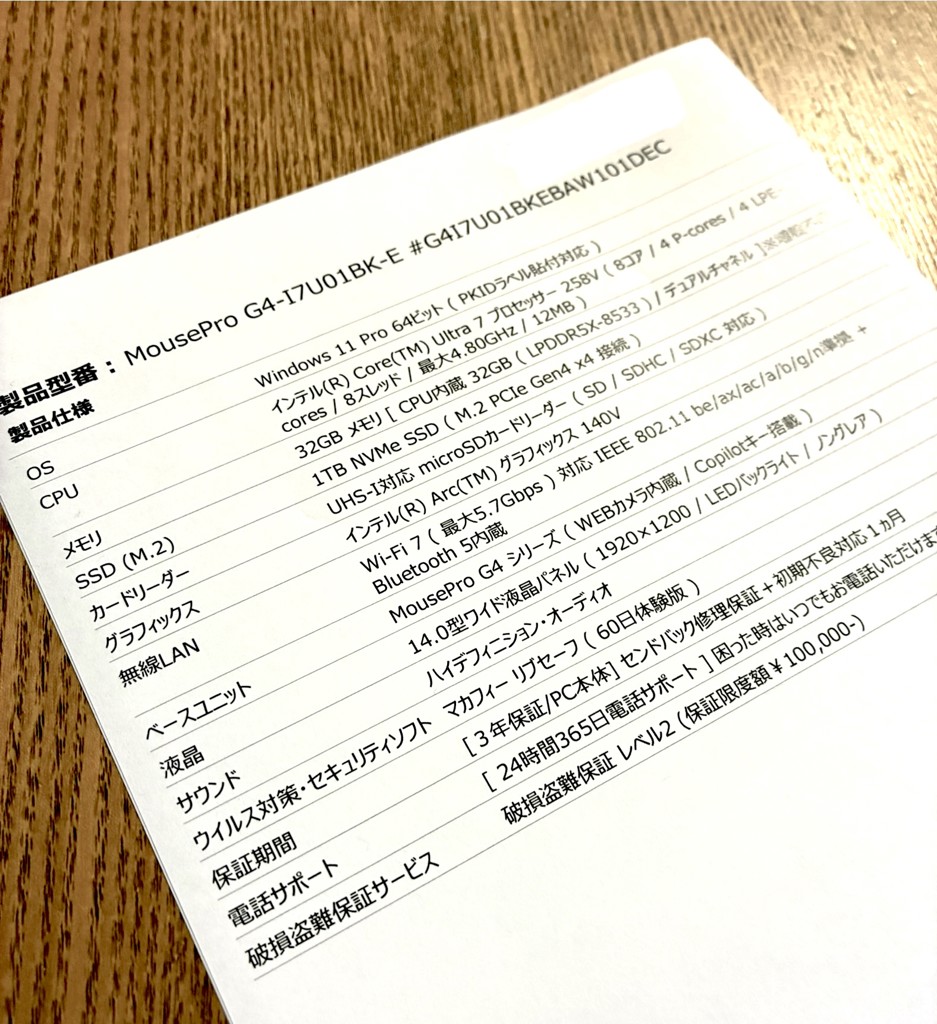 製品型番： MousePro G4-I7U01BK-E #G4I7U01BKEBAW101DEC
製品仕様
OS Windows 11 Pro 64ビット ( PKIDラベル貼付対応 )
CPU インテル(R) Core(TM) Ultra 7 プロセッサー 258V ( 8コア / 4 P-cores / 4 LPE
cores / 8スレッド / 最大4.80GHz / 12MB )
メモリ 32GB メモリ [ CPU内蔵 32GB ( LPDDR5X-8533 ) / デュアルチャネル ]
SSD (M.2) 1TB NVMe SSD ( M.2 PCIe Gen4 x4 接続 )
カードリーダー UHS-I対応 microSDカードリーダー ( SD / SDHC / SDXC 対応 )
グラフィックス インテル(R) Arc(TM) グラフィックス 140V
無線LAN Wi-Fi 7 ( 最大5.7Gbps ) 対応 IEEE 802.11 be/ax/ac/a/b/g/n準拠 +
Bluetooth 5内蔵
ベースユニット MousePro G4 シリーズ ( WEBカメラ内蔵 / Copilotキー搭載 )
液晶 14.0型ワイド液晶パネル ( 1920×1200 / LEDバックライト / ノングレア )
サウンド ハイデフィニション・オーディオ
ウイルス対策・セキュリティソフト マカフィー リブセーフ ( 60日体験版 )
保証期間 [ 3年保証/PC本体] センドバック修理保証＋初期不良対応１ヵ月
電話サポート [ 24時間365日電話サポート ] 困った時はいつでもお電話いただけます
破損盗難保証サービス 破損盗難保証 レベル2 (保証限度額￥100,000-)